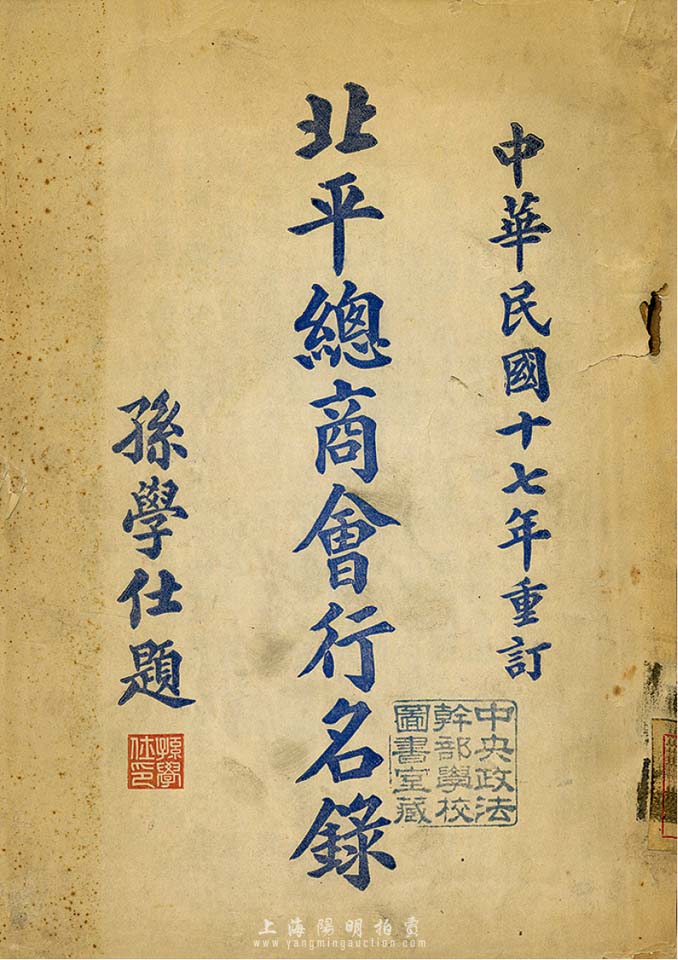 中華民國十七年重訂
北平總商會行名錄
孫學仕題
孫學
仕印
中央政法
幹部學校
圖書室藏
上海陽明拍賣
www.yangmingauction.com